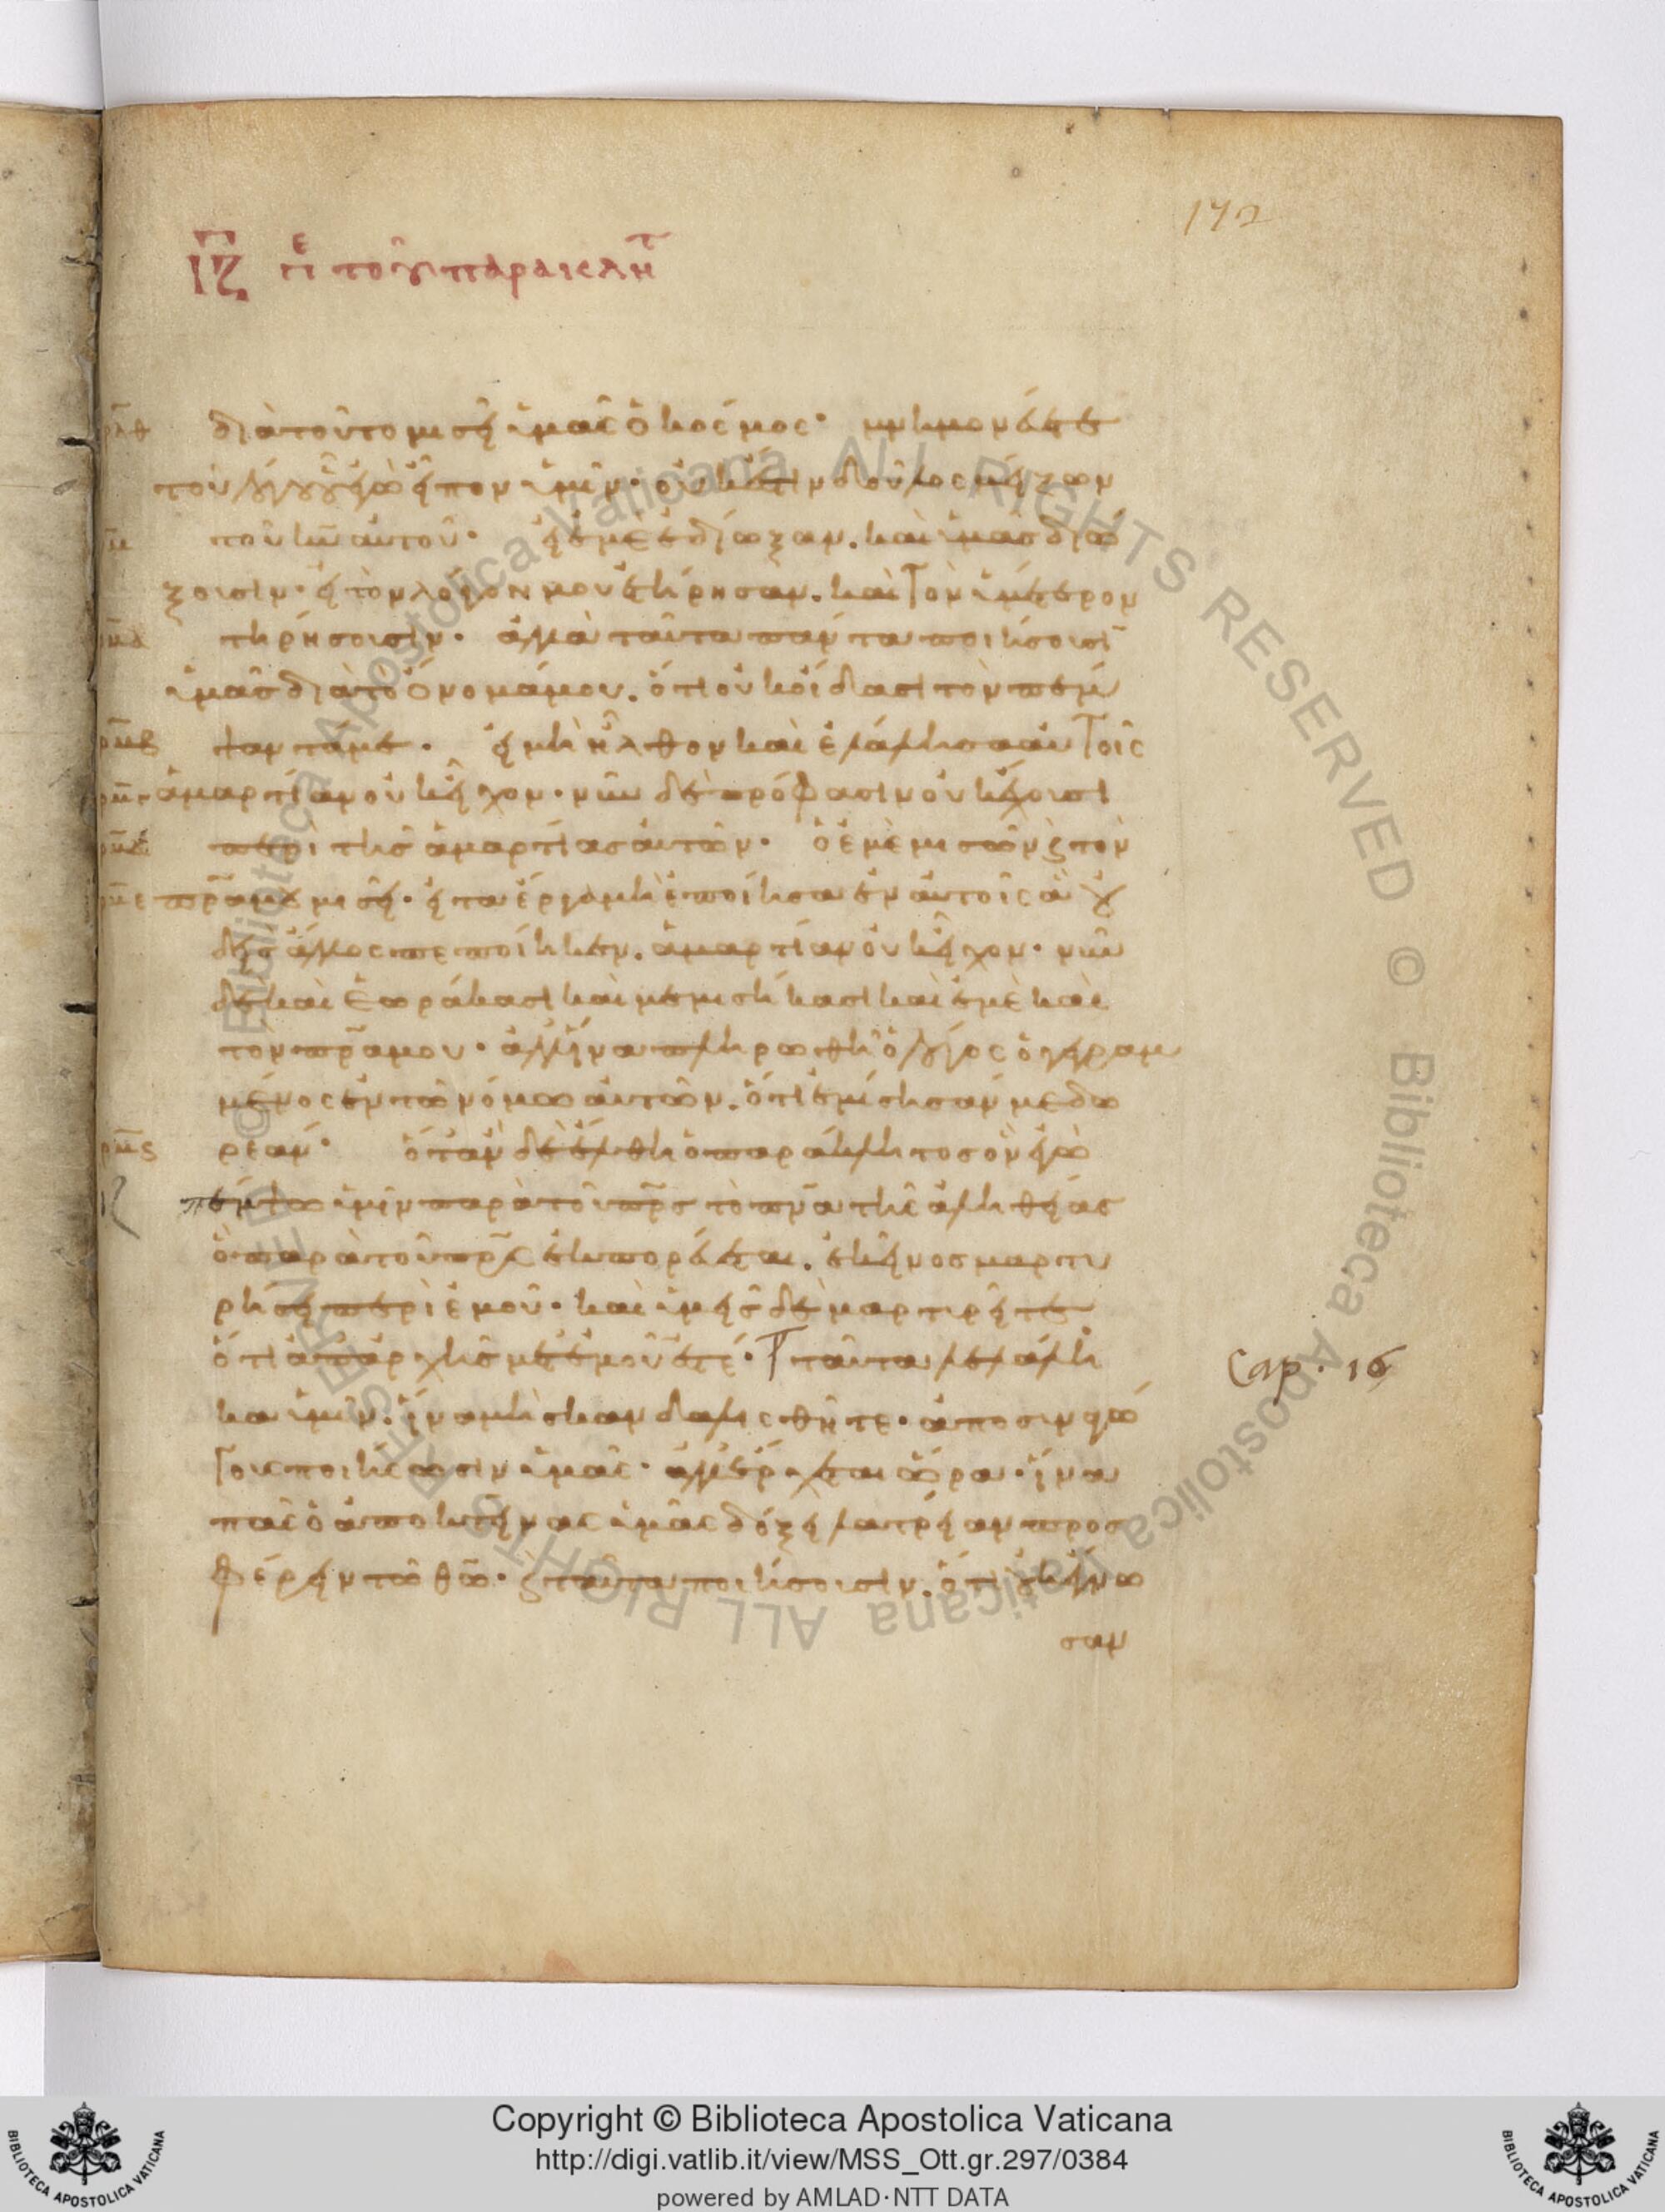 172
ιζ πε τοῦ παρακλητ
ρλθ διὰ τοῦτο μισεῖ ὑμᾶς ὁ κόσμος· μνημονεύετε
τοῦ λόγου οὗ ἐγὼ εἶπον ὑμῖν· οὐκ ἔστιν δοῦλος μείζων
ρμ τοῦ κυ αὐτοῦ· εἰ ἐμὲ ἐδίωξαν. καὶ ὑμᾶς διώ
ξουσιν· εἰ τὸν λόγον μου ἐτήρησαν. καὶ τὸν ὑμέτερον
ρμα τηρήσουσιν· ἀλλὰ ταῦτα πάντα ποιήσουσι
ὑμᾶς διὰ τὸ ὄνομά μου. ὅτι οὐκ οἴδασι τὸν πέμ
ρμβ ψαντά με· εἰ μὴ ἦλθον καὶ ἐλάλησα αὐτοῖς
ρμγ ἁμαρτίαν οὐκ εἶχον· νῦν δὲ πρόφασιν οὐκ ἔχουσι
ρμδ περὶ τῆς ἁμαρτίας αὐτῶν· ὁ ἐμὲ μισῶν καὶ τὸν
ρμε πρα μου μισεῖ· εἰ τὰ ἔργα μὴ ἐποίησα ἐν αὐτοῖς ἃ οὐ
δεὶς ἄλλος πεποίηκεν. ἁμαρτίαν οὐκ εἶχον· νῦν
δὲ καὶ ἑωράκασι καὶ μεμισήκασι καὶ ἐμὲ καὶ
τὸν πρα μου· ἀλλ' ἵνα πληρωθῇ ὁ λόγος ὁ γεγραμ
μένος ἐν τῶ νόμω αὐτῶν. ὅτι ἐμίσησάν με δω
ρμς ρεάν· ὅταν δὲ ἔλθῃ ὁ παράκλητος ὃν ἐγὼ
πέμψω ὑμῖν παρὰ τοῦ πρς τὸ πνα τῆς ἀληθείας
ὃ παρὰ τοῦ πρς ἐκπορεύεται. ἐκεῖνος μαρτυ
ρήσει περὶ ἐμοῦ· καὶ ὑμεῖς δὲ μαρτυρεῖτε
ὅτι ἀπαρχῆς μετ' ἐμοῦ ἐστέ· ταῦτα λελάλη
Cap. 16
κα ὑμῖν. ἵνα μὴ σκανδαλισθῆτε· ἀποσυναγώ
γους ποιήσωσιν ὑμᾶς· ἀλλ' ἔρχεται ὥρα· ἵνα
πᾶς ὁ ἀποκτείνας ὑμᾶς δόξῃ λατρείαν προσ
φέρειν τῶ θω· καὶ ταῦτα ποιήσουσιν. ὅτι οὐκ ἔγνω
σαν
Copyright © Biblioteca Apostolica Vaticana
http://digi.vatlib.it/view/MSS_Ott.gr.297/0384
powered by AMLAD·NTT DATA
BIBLIOTECA APOSTOLICA VATICANA
BIBLIOTECA APOSTOLICA VATICANA
© Biblioteca Apostolica Vaticana ALL RIGHTS RESERVED © Biblioteca Apostolica Vaticana ALL RIGHTS RESERVED